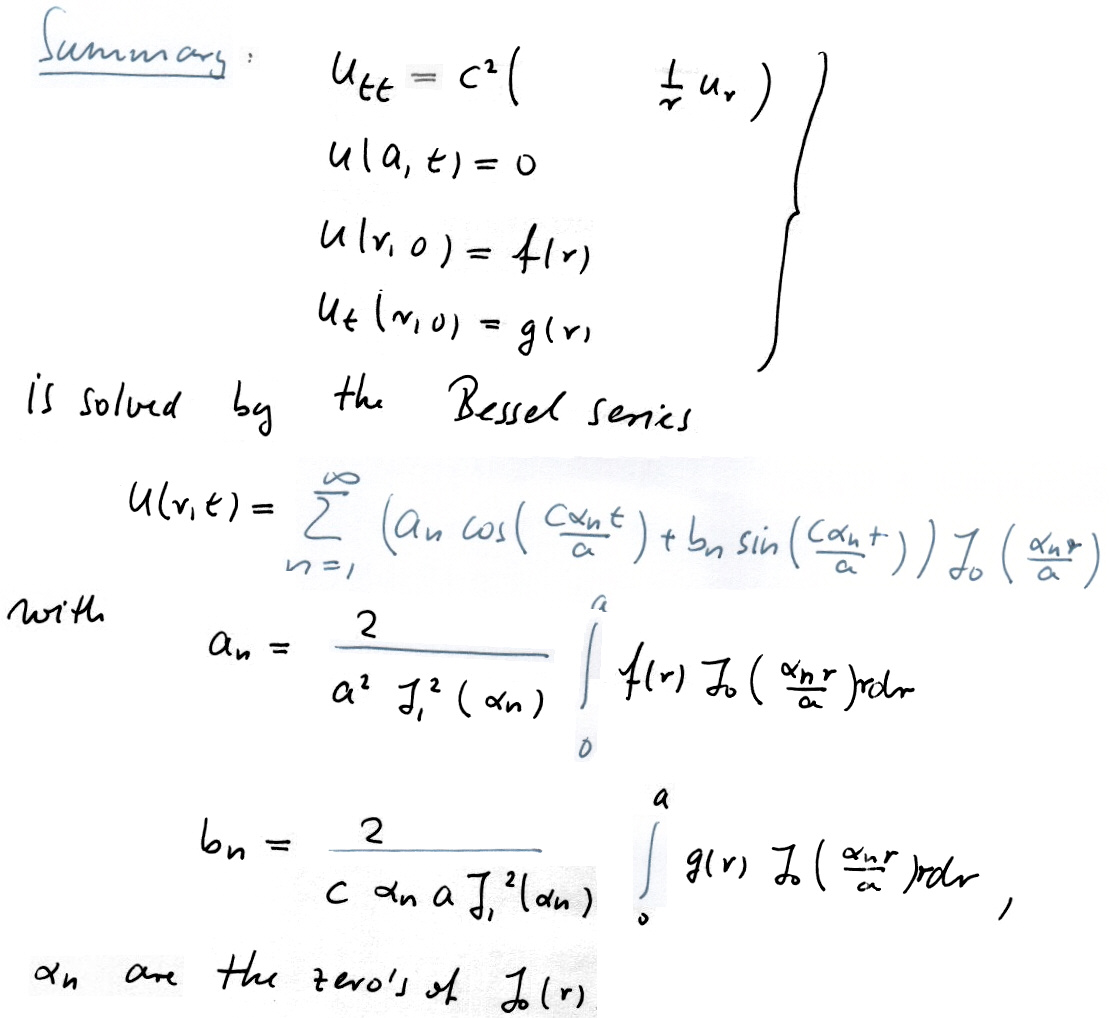 Summary:
u_tt = c²(        1/r u_r)
u(a, t) = 0
u(r, 0) = f(r)
u_t(r, 0) = g(r)
is solved by the Bessel series
u(r, t) = ∑_{n=1}^{∞} (a_n cos(cα_n t / a) + b_n sin(cα_n t / a)) J_0(α_n r / a)
with
a_n = 2 / (a² J_1²(α_n)) ∫_0^a f(r) J_0(α_n r / a) r dr
b_n = 2 / (c α_n a J_1²(α_n)) ∫_0^a g(r) J_0(α_n r / a) r dr ,
α_n are the zero's of J_0(r)